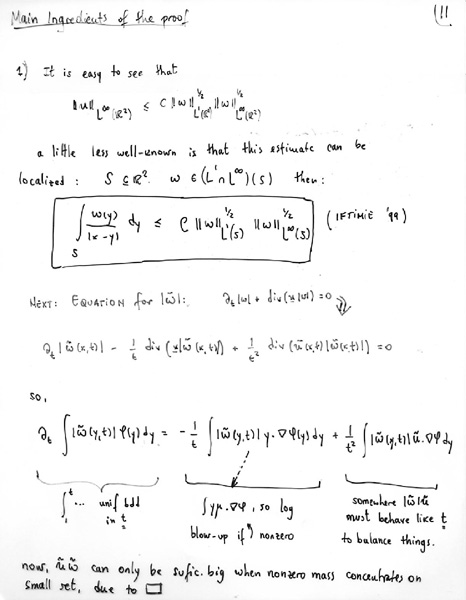 Main Ingredients of the proof
11
1) It is easy to see that
‖u‖_{L^∞(ℝ²)} ≤ C ‖ω‖^{1/2}_{L¹(ℝ²)} ‖ω‖^{1/2}_{L^∞(ℝ²)}
a little less well-known is that this estimate can be
localized : S ⊆ ℝ². ω ∈ (L¹∩L^∞)(S) then:
∫_S ω(y)/|x-y| dy ≤ C ‖ω‖^{1/2}_{L¹(S)} ‖ω‖^{1/2}_{L^∞(S)} (IFTIMIE '99)
NEXT: EQUATION for |ω̃|: ∂_t|ω| + div(u|ω|) = 0 ⇓
∂_t |ω̃(x,t)| - 1/t div(x|ω̃(x,t)|) + 1/t² div(ũ(x,t)|ω̃(x,t)|) = 0
so,
∂_t ∫|ω̃(y,t)| φ(y) dy = - 1/t ∫|ω̃(y,t)| y·∇φ(y) dy + 1/t² ∫|ω̃(y,t)| ũ·∇φ dy
∫_1^t ... unif bdd in t
∫yμ·∇φ, so log blow-up if nonzero
somewhere |ω̃|ũ must behave like t to balance things.
now, ũ ω̃ can only be sufic. big when nonzero mass concentrates on
small set, due to □